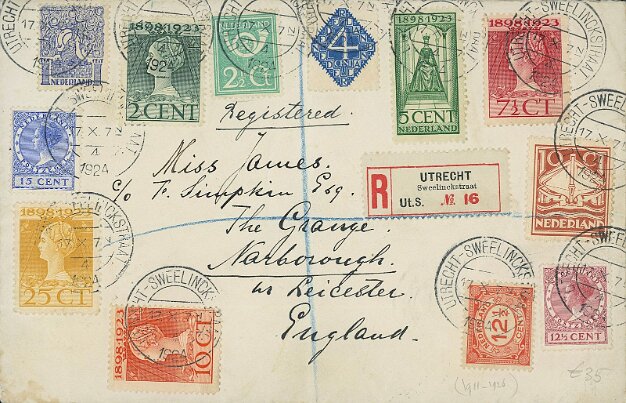 NEDERLAND
1898-1923
2 CENT
NEDERLAND
2½ CT
4
1898-1923
5 CENT
NEDERLAND
1898-1923
7½ CT
15 CENT
Registered.
Miss James.
c/o F. Simpkin Esq.
The Grange.
Narborough.
nr Leicester.
England.
R
UTRECHT
Sweelinckstraat
Uts. № 16
10 CT
NEDERLAND
1898-1923
25 CT
1898-1923
10 CT
12½
12½ CENT
UTRECHT-SWEELINCKSTRAAT
17.X.7N
4
1924
(1911-1926)
€35